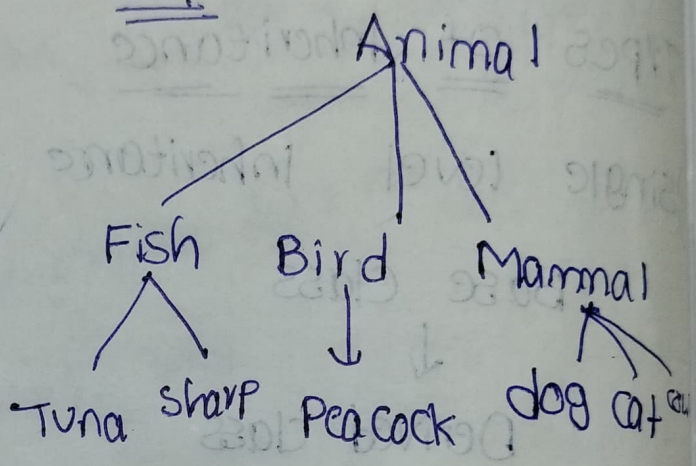 Animal
Fish Bird Mammal
Tuna sharp Peacock dog cat